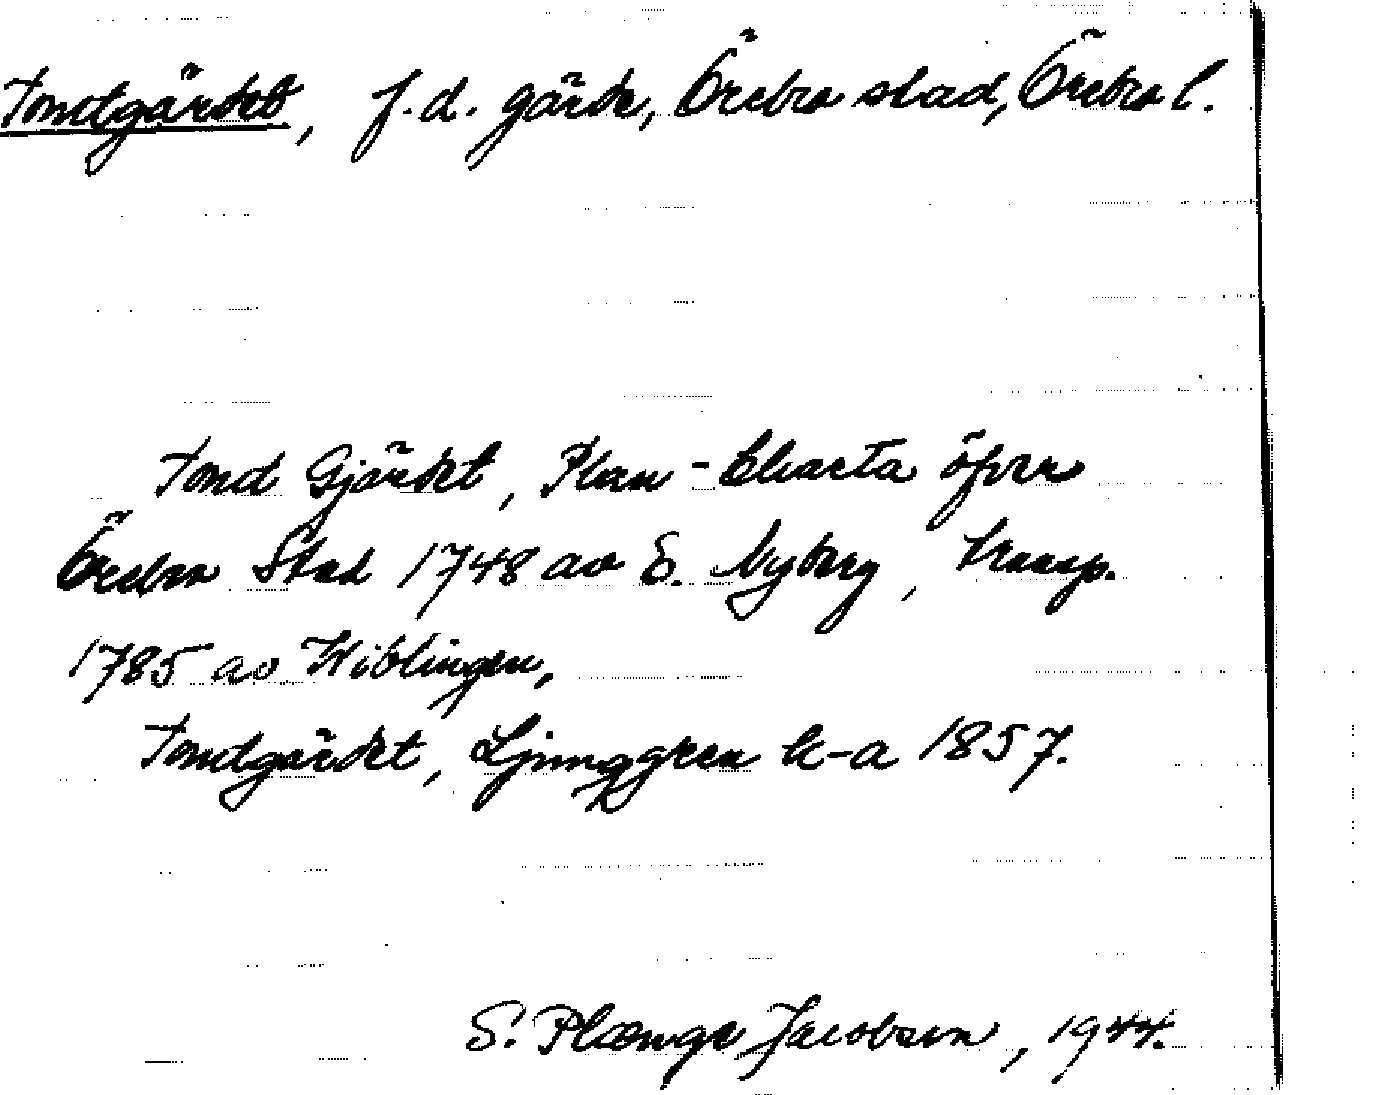 Tomtgärdet, f.d. gärde, Örebro stad, Örebro l.
Tomd Gjärdet, Plan-Charta öfver
Örebro Stad 1748 av E. Nyberg, transp.
1785 av Wiblingen,
Tomtgärdet, Ljunggren k-a 1857.
S. Plænge Jacobson, 1944.